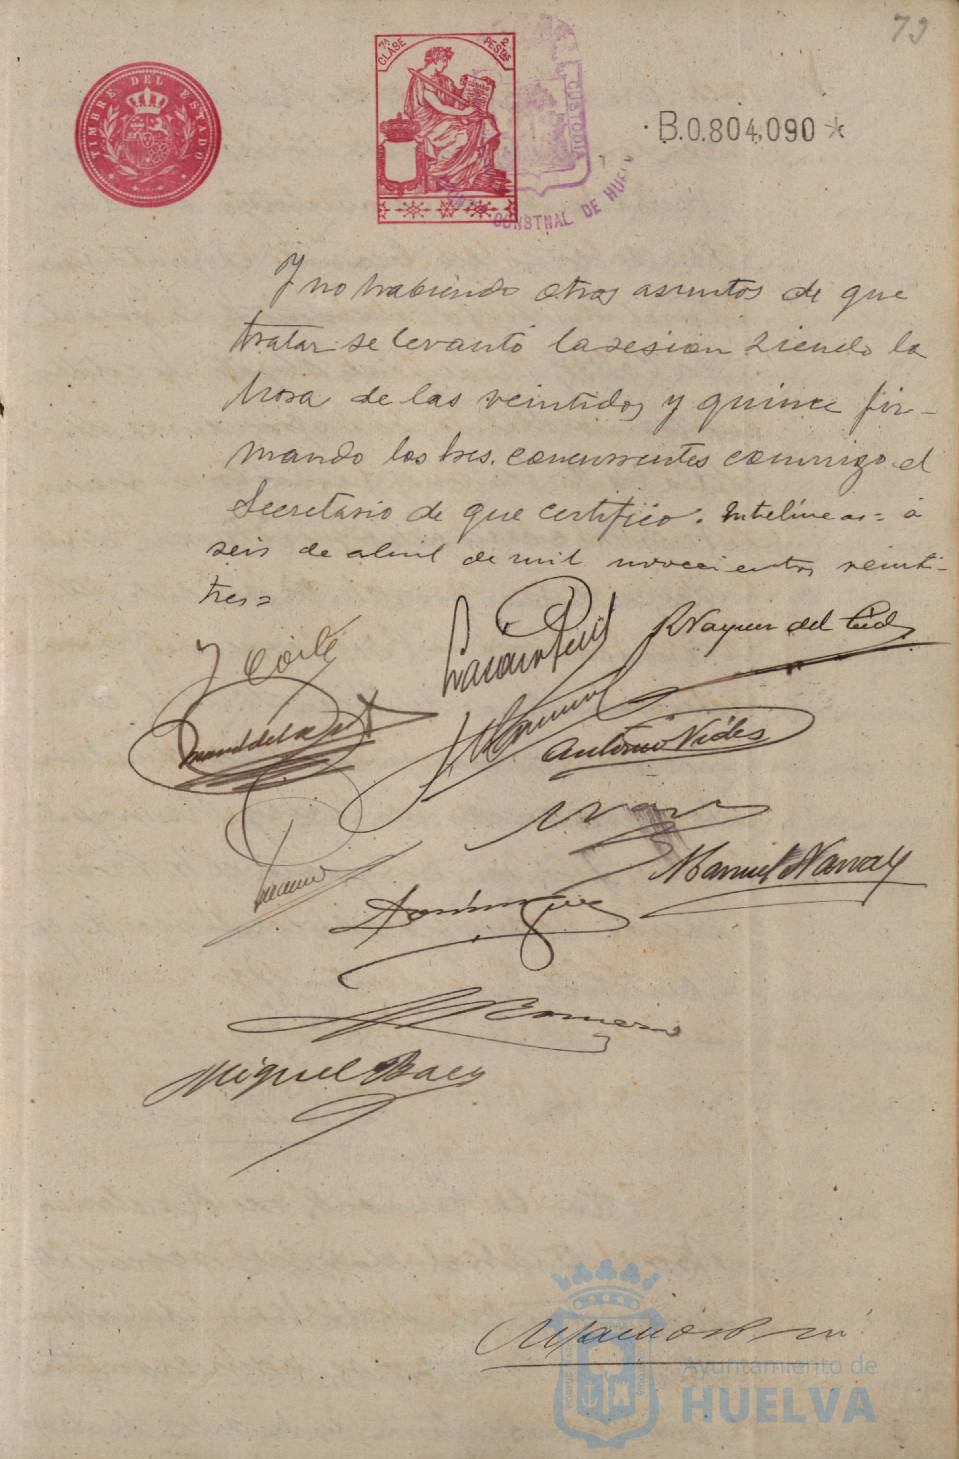 79
TIMBRE DEL ESTADO
7ª CLASE
2 PESTAS
CUSTODIA
CONSTNAL DE HUELV
B.0.804,090 *
Y no habiendo otros asuntos de que
tratar se levantó la sesion siendo la
hora de las veintidos y quince fir-
mando los Sres. concurrentes conmigo el
Secretario de que certifico. Entrelíneas = á
seis de abril de mil novecientos veinti-
tres =
Antonio Vides
Manuel Narvaez
Dominguez
Romero
Miguel Baez
Ayuntamiento de
HUELVA